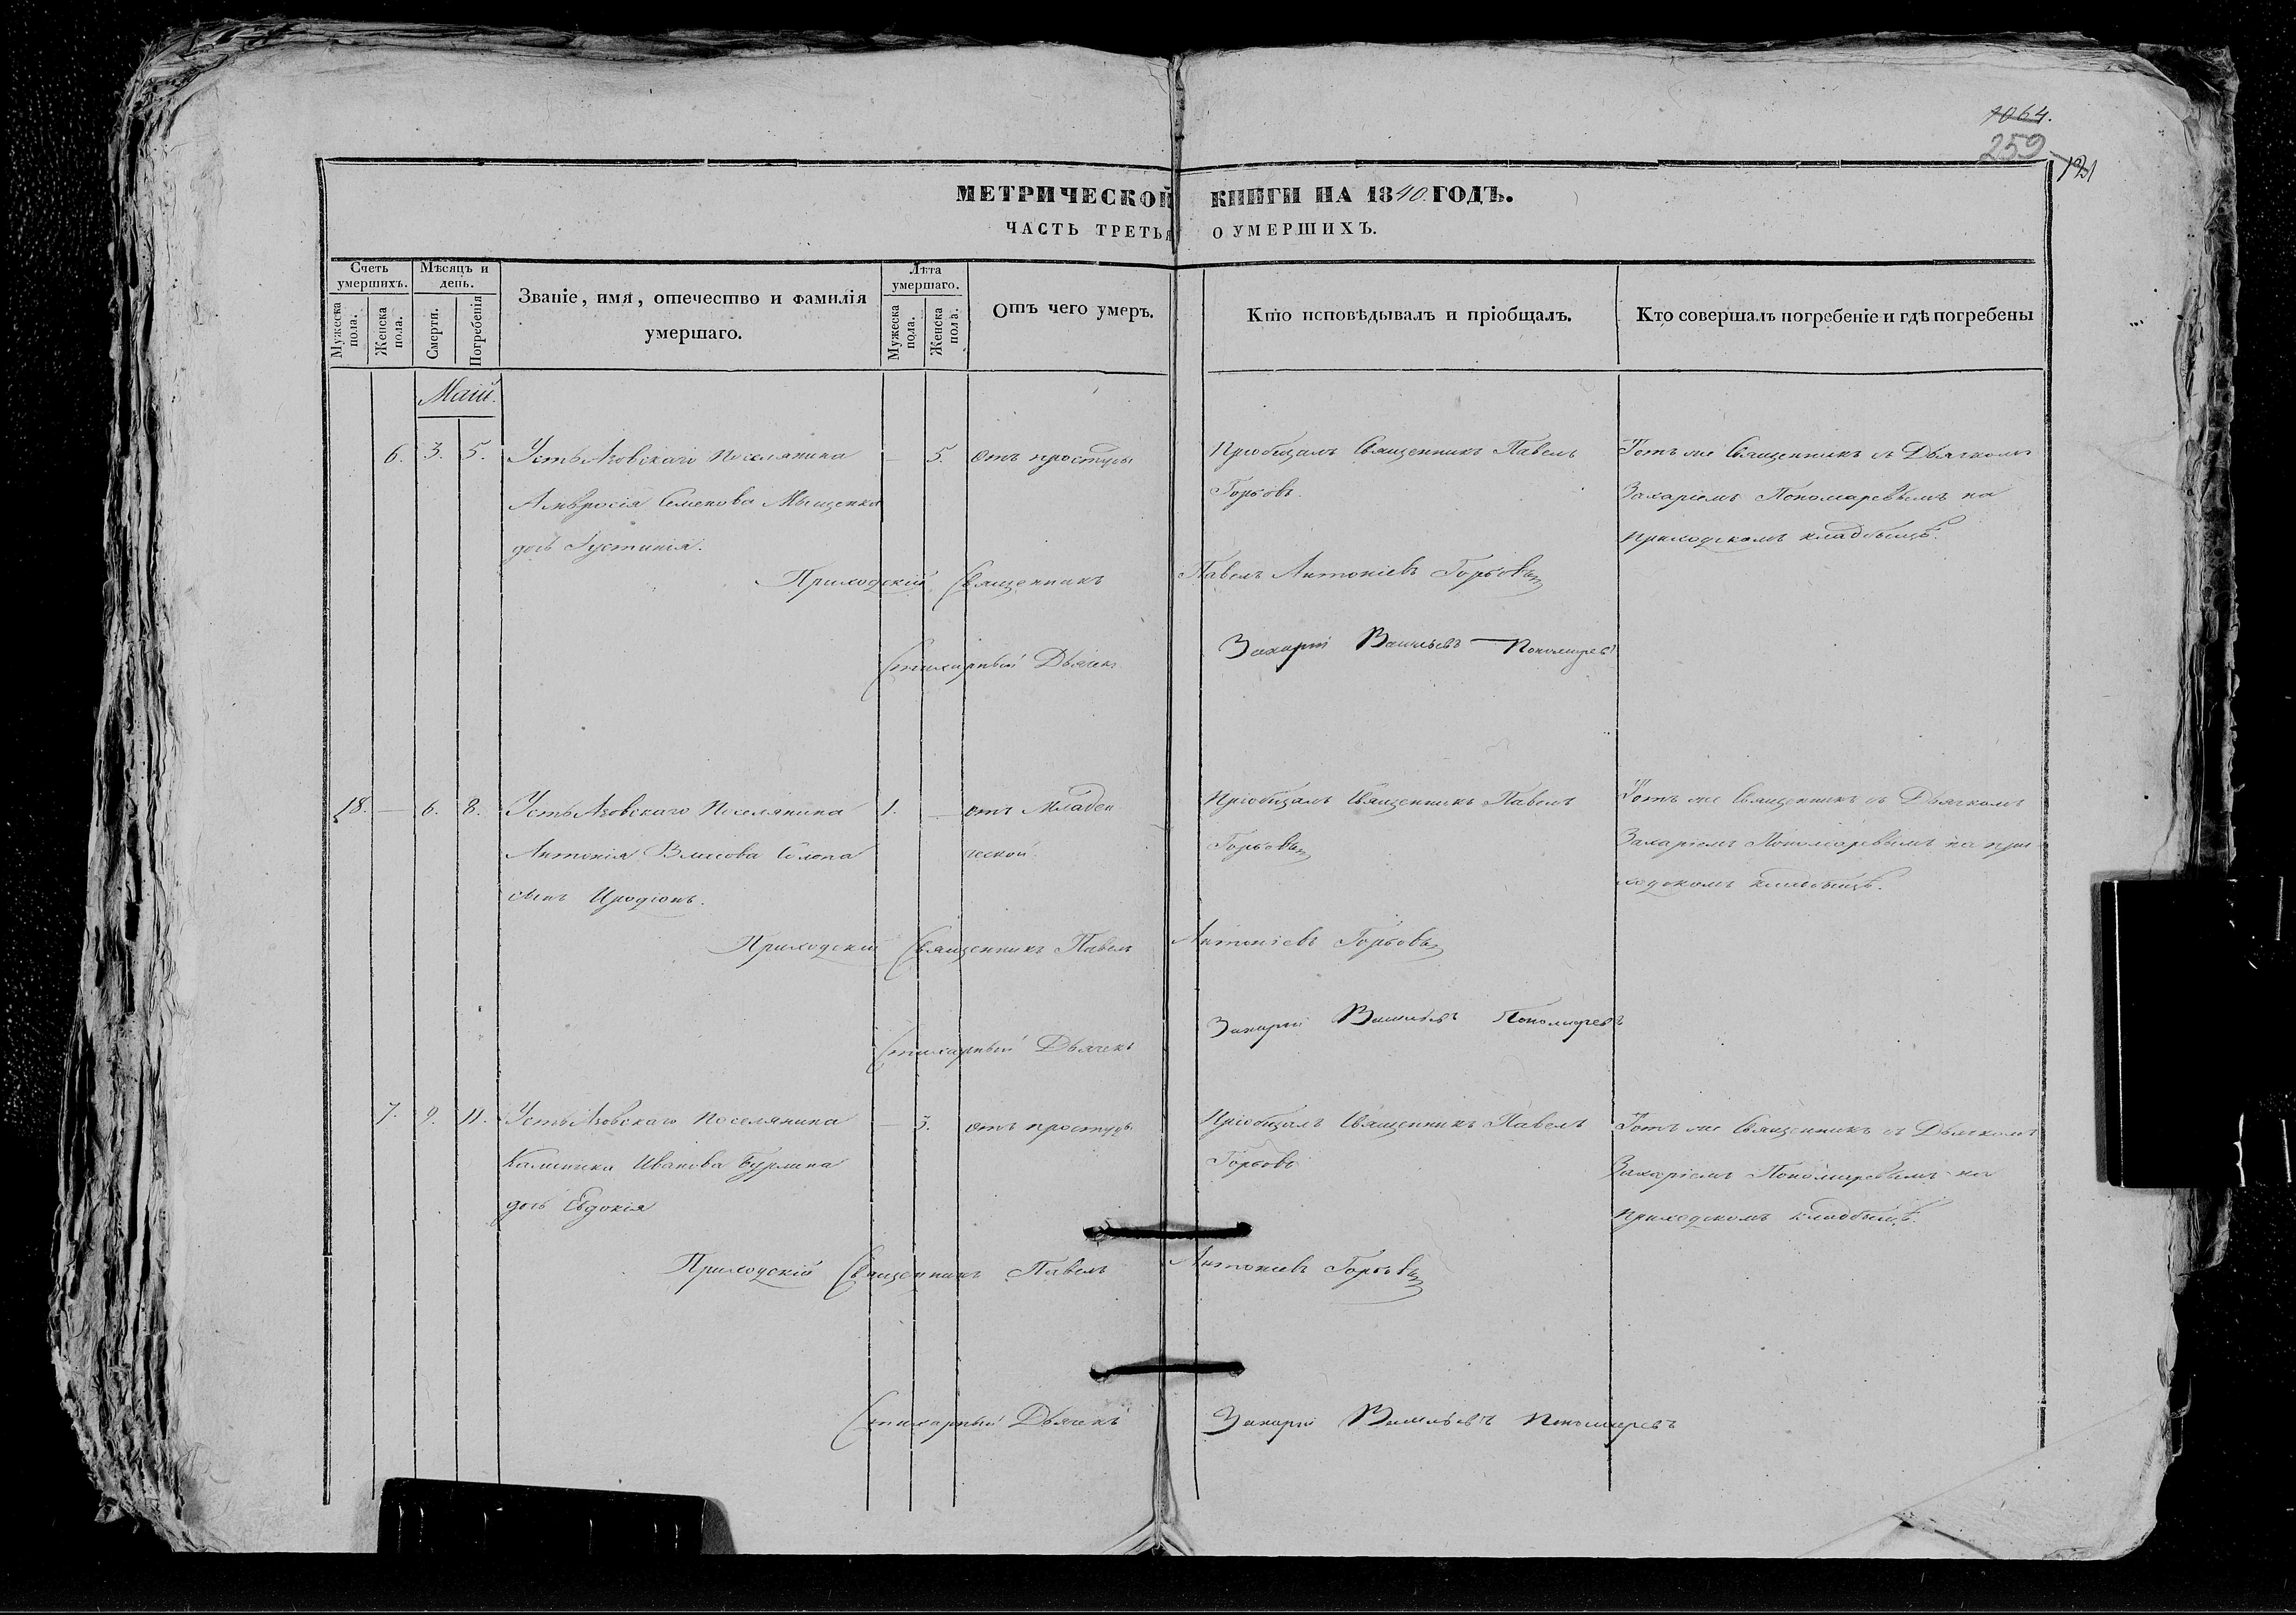 1064.
259
МЕТРИЧЕСКОЙ КНИГИ НА 1840. ГОДЪ.
ЧАСТЬ ТРЕТЬЯ О УМЕРШИХЪ.
Счетъ умершихъ.
Мужеска пола.
Женска пола.
Мѣсяцъ и день.
Смерти.
Погребенія
Званіе, имя, отечество и фамилія
умершаго.
Лѣта умершаго.
Мужеска пола.
Женска пола.
Отъ чего умеръ.
Кто исповѣдывалъ и пріобщалъ.
Кто совершалъ погребеніе и гдѣ погребены
Маій.
6. 3. 5. Усть Азовскаго Поселянина — 5. отъ простуды Пріобщалъ Священникъ Павелъ Тотъ же Священникъ съ Дьячкомъ
Амвросія Семенова Мищенка Горбовъ. Захаріемъ Пономаревымъ на
дочь Іустинія. приходскомъ кладбищѣ.
Приходскій Священникъ Павелъ Антоніевъ Горбовъ
Стихарный Дьячекъ Захарій Васильевъ Пономаревъ
18. — 6. 8. Усть Азовскаго Поселянина 1. — отъ Младен Пріобщалъ Священникъ Павелъ Тотъ же Священникъ съ Дьячкомъ
Антонія Власова сына ческой Горбовъ Захаріемъ Пономаревымъ на при
сынъ Иродіонъ. ходскомъ кладбищѣ.
Приходскій Священникъ Павелъ Антоніевъ Горбовъ
Стихарный Дьячекъ Захарій Васильевъ Пономаревъ
7. 9. 11. Усть Азовскаго Поселянина — 3. отъ простуды Пріобщалъ Священникъ Павелъ Тотъ же Священникъ съ Дьячкомъ
Калиника Иванова Бурлина Горбовъ Захаріемъ Пономаревымъ на
дочь Евдокія приходскомъ кладбищѣ.
Приходскій Священникъ Павелъ Антоніевъ Горбовъ
Стихарный Дьячекъ Захарій Васильевъ Пономаревъ